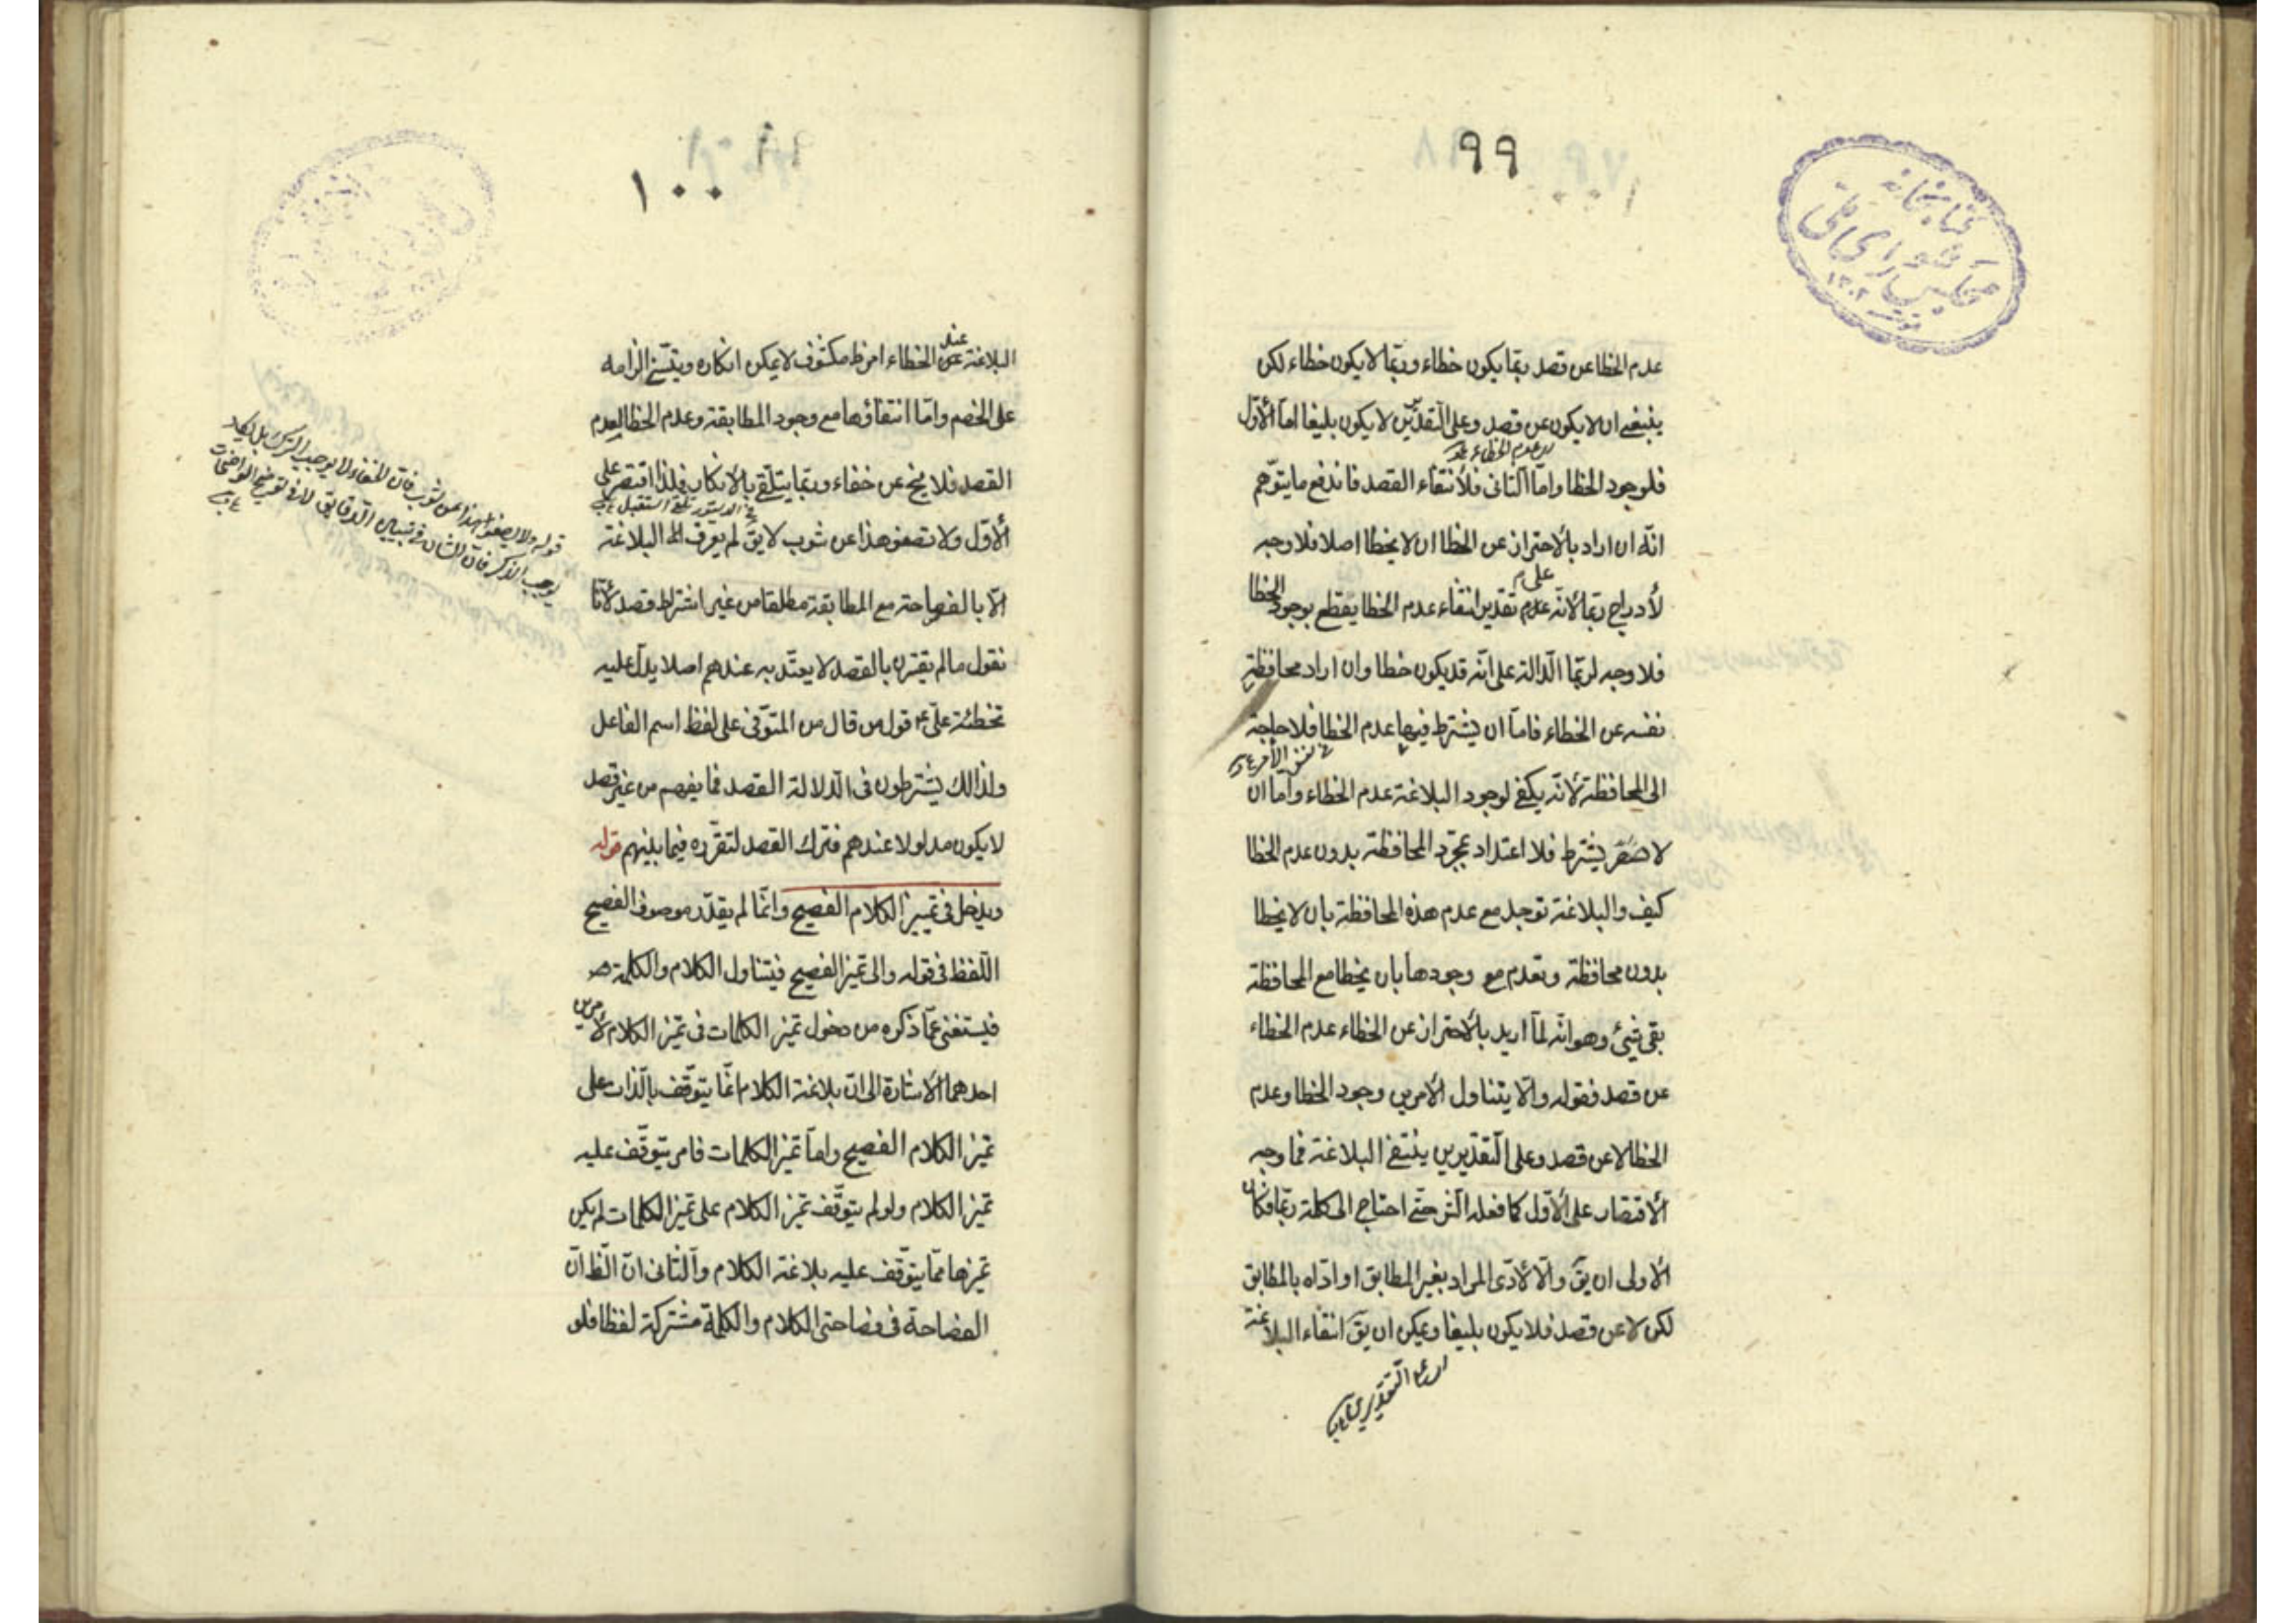 ٩٩
كتابخانه
مجلس شورای ملی
١٣٠٢
عدم الخطا عن قصد ربّما يكون خطاء وربّما لا يكون خطاء لكن
ينبغى ان لا يكون عن قصد وعلى التقديرين لا يكون بليغا امّا الأوّل
عدم الخطاء
فلوجود الخطا وامّا الثانى فلأنتفاء القصد فاندفع ما يتوّهم
انّه ان اراد بالأحتراز عن الخطا ان لا يخطا اصلا فلا وجه
على م
لأدراج ربّما لأنّه عدم تقدير انتفاء عدم الخطا يقطع بوجود الخطا
فلا وجه لربّما الدّالة على انّه قد يكون خطا وان اراد محافظة
نفسه عن الخطاء فامّا ان يشترط فيها عدم الخطا فلا حاجة
فى نفس الأمر
الى المحافظة لأنّه يكفى لوجود البلاغة عدم الخطاء وامّا ان
لا يشترط فلا اعتداد بمجرّد المحافظة بدون عدم الخطا
كيف والبلاغة توجد مع عدم هذه المحافظة بان لا يخطا
بدون محافظة وتعدم مع وجودها بان يخطا مع المحافظة
بقى شيئ وهو انّه لمّا اريد بالأحتراز عن الخطاء عدم الخطاء
عن قصد فقوله والّا يتناول الأمرين وجود الخطا وعدم
الخطا لا عن قصد وعلى التقديرين ينتفى البلاغة فما وجه
الأقتصار على الأوّل كما فعله الش حتّى احتاج الى كلمة ربّما فكان
الأولى ان يقّ والّا لأدّى المراد بغير المطابق او ادّاه بالمطابق
لكن لا عن قصد فلا يكون بليغا ويمكن ان يقّ انتفاء البلاغة
١٠٠
البلاغة عند الخطاء امر ظ مكشوف لا يمكن انكاره ويتسنى الزامه
على الخصم وامّا انتفاؤها مع وجود المطابقة وعدم الخطا لعدم
القصد فلا يخ عن خفاء وربّما يتلقّى بالأنكار فلذا اقتصر على
الأوّل ولا تصفو هذا عن شوب لا يقّ لم يعرف الى البلاغة
الّا بالفصاحة مع المطابقة مطلقا من غير اشتراط قصد لأنّا
نقول ما لم يقترن بالقصد لا يعتدّ به عندهم اصلا يدلّ عليه
تخطئة علىّ ع قول من قال من المتوّفى على لفظ اسم الفاعل
ولذالك يشترطون فى الدّلالة القصد فما يفهم من غير قصد
لا يكون مدلولا عندهم فترك القصد لتقرّره فيما بينهم قوله
ويدخل فى تمييز الكلام الفصيح وانّما لم يقدّر موصوف الفصيح
اللّفظ فى قوله والى تميز الفصيح فيتناول الكلام والكلمة
فيستغنى عمّا ذكره من دخول تميز الكلمات فى تميز الكلام لأمرين
احدهما الأشارة الى انّ بلاغة الكلام انّما يتوّقف بالّذات على
تميز الكلام الفصيح وامّا تميز الكلمات فامر يتوّقف عليه
تميز الكلام ولو لم يتوّقف تميز الكلام على تميز الكلمات لم يكن
تميزها ممّا يتوّقف عليه بلاغة الكلام والثّانى انّ الظ انّ
الفصاحة فى فصاحتى الكلام والكلمة مشتركة لفظا فلو